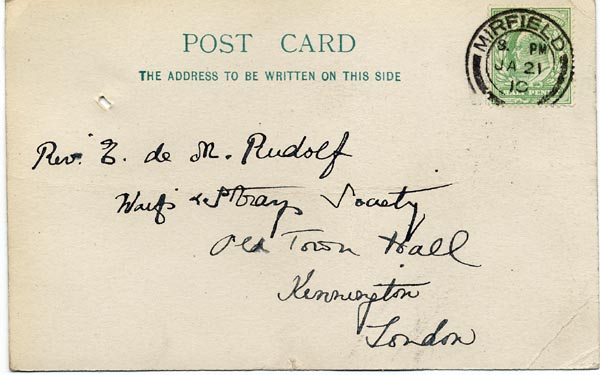 POST CARD
THE ADDRESS TO BE WRITTEN ON THIS SIDE
MIRFIELD
PM
JA 21
10
HALF PENNY
Rev. E. de M. Rudolf
Waifs & Strays Society
Old Town Hall
Kennington
London